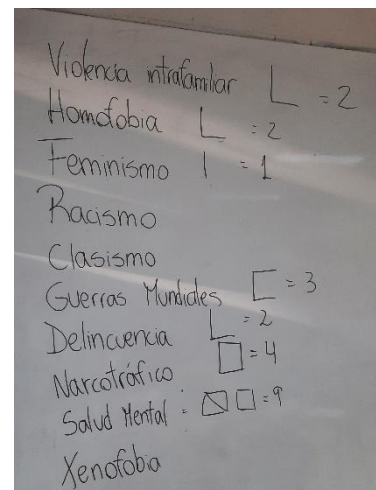 Violencia intrafamiliar = 2
Homofobia = 2
Feminismo | = 1
Racismo
Clasismo
Guerras Mundiales = 3
Delincuencia = 2
Narcotráfico = 4
Salud Mental : = 9
Xenofobia